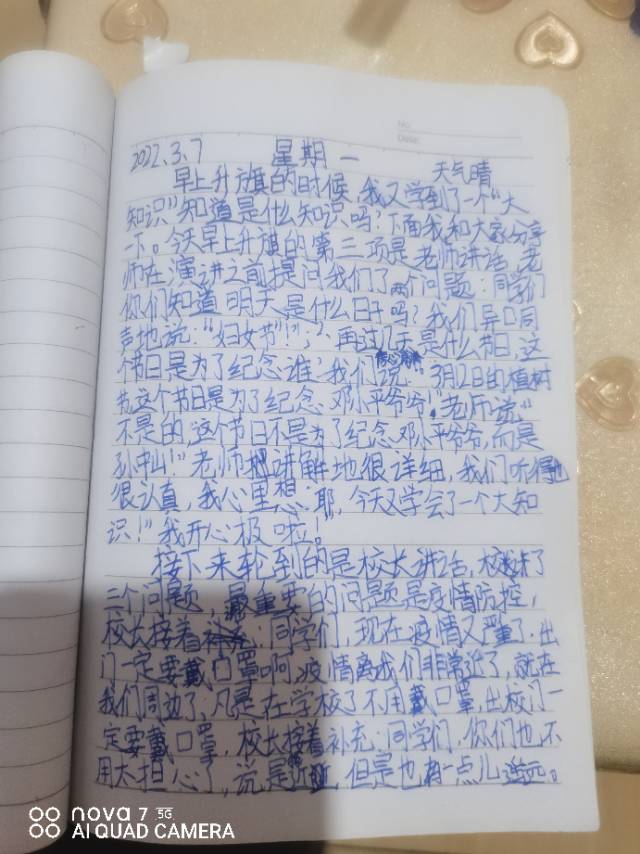 No:
Date:
2022.3.7 星期一 天气晴
早上升旗的时候,我又学到了一个“大
知识”知道是什么知识吗?下面我和大家分享
一下。今天早上升旗的第三项是老师讲话,老
师在演讲之前提问我们了两个问题:同学们
你们知道明天是什么日子吗?我们异口同
声地说:“妇女节”!”,“再过几天是什么节日,这
个节日是为了纪念谁?我们说:3月12日的植树
节,这个节日是为了纪念邓小平爷爷!”老师说“
不是的,这个节日不是为了纪念邓小平爷爷,而是
孙中山!”老师讲解地很详细,我们听得也
很认真,我心里想:耶,今天又学会了一个大知
识!”我开心极啦!
接下来轮到的是校长讲话,校长讲了
三个问题,最重要的问题是疫情防控,
校长接着:同学们,现在疫情又严了.出
门一定要戴口罩啊,疫情离我们非常近了,就在
我们周边了,凡是在学校了不用戴口罩,出校门一
定要戴口罩,校长接着补充:同学们,你们也不
用太担心了,说是近,但是也有一点儿远。
nova 7 5G
AI QUAD CAMERA